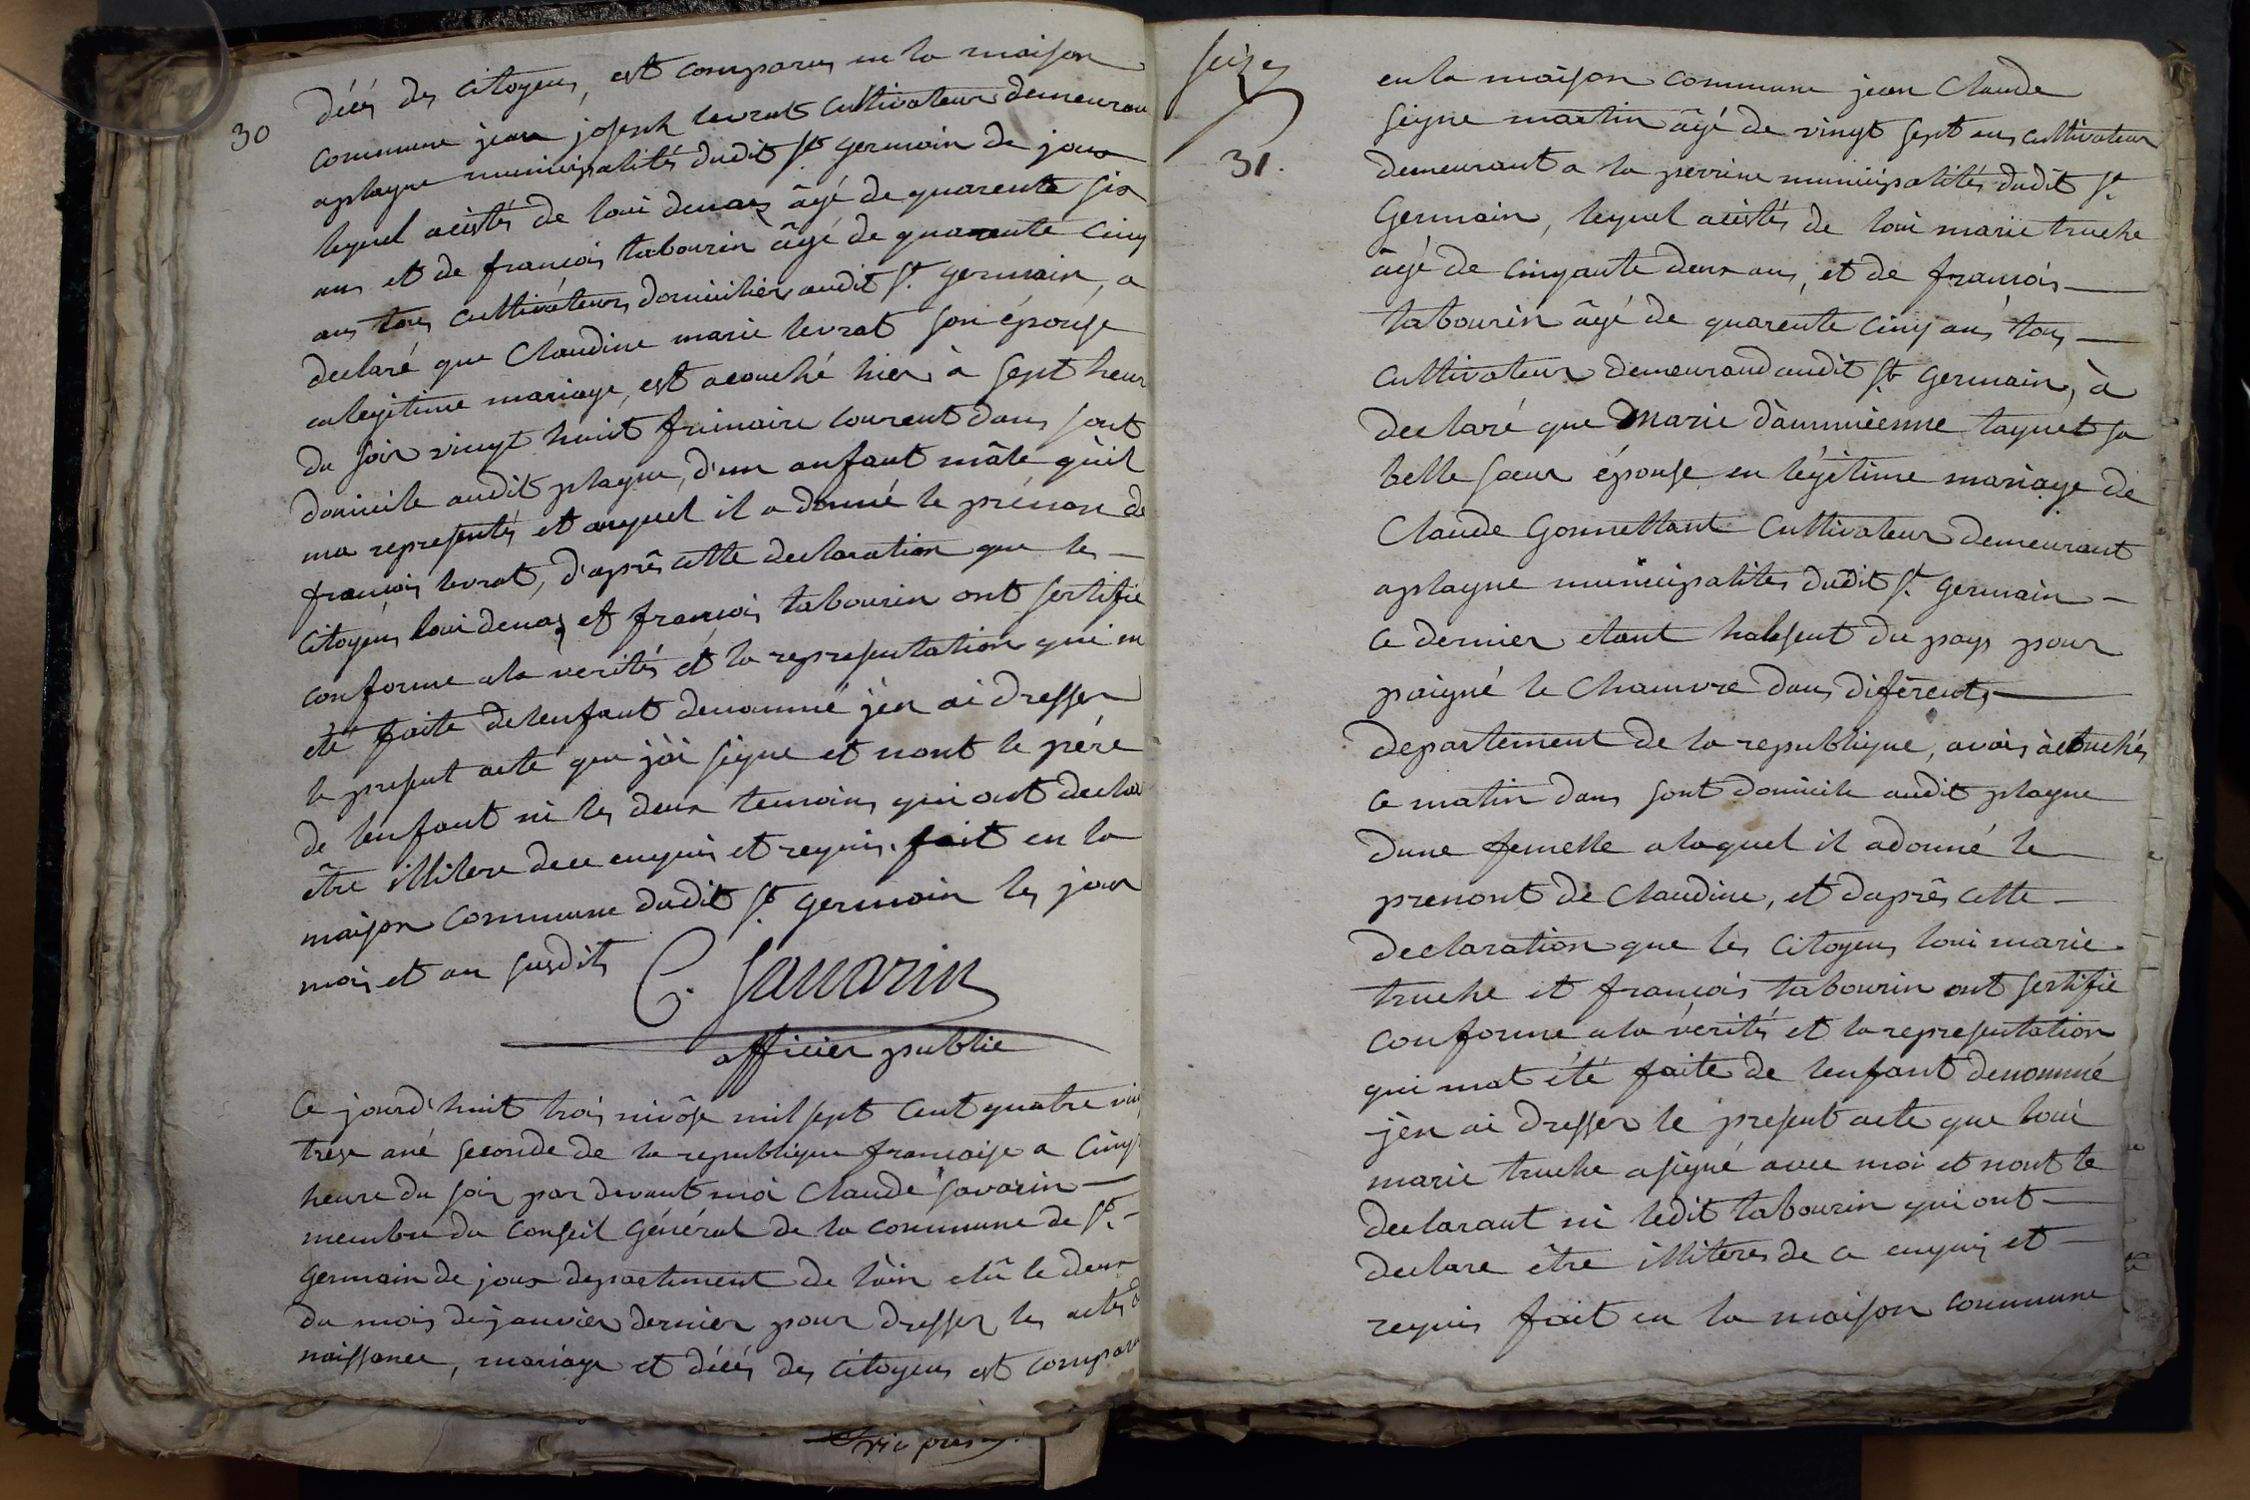 30
décés des citoyens, est comparus en la maison
commune jean joseph levrat cultivateur demeuran
aplagne municipalités dudit St germain de joux
lequel acistés de loui denas âgé de quarente six
ans et de francois tabourin âgé de quarente cinq
ans tous cultivateurs domiciliés audit St germain, a
declaré que Claudine marie levrat son épouse
en legitime mariage, est acouché hier à sept heur
du soir vingt huit frimaire courent dans sont
domicile audit plagne, d'un anfant mâle qu'il
ma representés et auquel il a donné le prénom de
francois levrat, d'aprês cette declaration que les
Citoyens loui denas et francois tabourin ont sertifie
conforme ala verités et la representation qui m
été faite delenfant denommé j'en ai dresser
le present acte que j'ai signe et nont le pére
de lenfant ni les deux temoins qui ont declar
être illitere dece enquis et requis. fait en la
maison commune dudit St germain les jour
mois et an susdits
C. Savarin
officier public
Ce jourd'huit trois nivôse mil sept cent quatre vin
trese ané seconde de la republique francaise a cinq
heure du soir par devant moi Claude Savarin
membre du conseil général de la commune de St.
Germain de joux departement de l'ain elû le deux
du mois de janvier dernier pour dresser les actes d
naissance, mariage et décés des citoyens est comparu
seize
31.
en la maison commune jean Claude
seigne martin âgé de vingt sept ans cultivateur
demeurant a la perrine municipalités dudit St.
Germain, lequel acistés de loui marie truche
âgé de cinqante deux ans, et de francois
tabourin âgé de quarente cinq ans tous
cultivateur demeurand audit St Germain, à
declaré que Marie d'ammiênne taquet sa
belle sœur épouse en légitime mariage de
Claude Gonnettant Cultivateur demeurant
aplagne municipalités dudit St. Germain
ce dernier étant habsent du pays pour
paigné le Chamvre dans diférents
departement de la republique, avais acouchés
ce matin dans sont domicile audit plagne
dune femelle alaquel il adonné le
prenont de Claudine, et daprês cette
declaration que les Citoyens loui marie
truche et francois tabourin ont sertifie
conforme ala vérités et la representation
qui mat été faite de lenfant denommé
j'en ai dresser le present acte que loui
marie truche asigné avec moi et nont le
declarant ni ledit tabourin qui ont
declare être illiteres de ce enquis et
requis fait en la maison commune